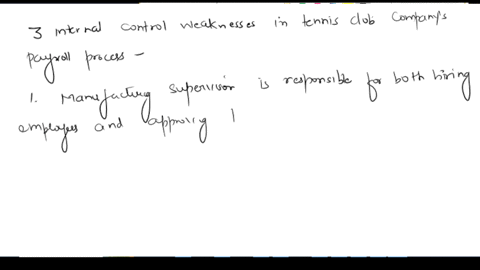 3 internal control weaknesses in tennis club Company's
payroll process -
1. Manufacturing supervisor is responsible for both hiring
employees and approving